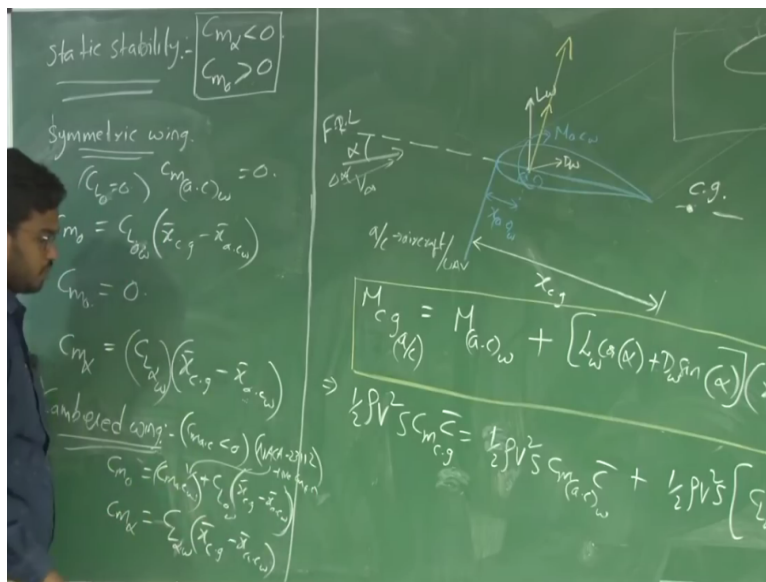 Static stability:- Cmα < 0
Cm₀ > 0
Symmetric wing.
(CL₀ = 0) Cm(a.c)w = 0.
Cm₀ = CL₀w (x̄c.g - x̄a.cw)
Cm₀ = 0.
Cmα = (CLαw)(x̄c.g - x̄a.cw)
Cambered wing:- (Cma.c < 0)
Cm₀ = (Cma.cw) + CL₀w (x̄c.g - x̄a.cw)
Cmα = CLαw (x̄c.g - x̄a.cw)
F.R.L
α
V∞
Lw
Ma.cw
Dw
c.g.
xa.cw
a/c - aircraft/UAV
xc.g
Mc.g(A/c) = M(a.c)w + [Lw cos(α) + Dw sin(α)](x
⇒ ½ρV²S Cmc.g c̄ = ½ρV²S Cm(a.c)w c̄ + ½ρV²S [CL